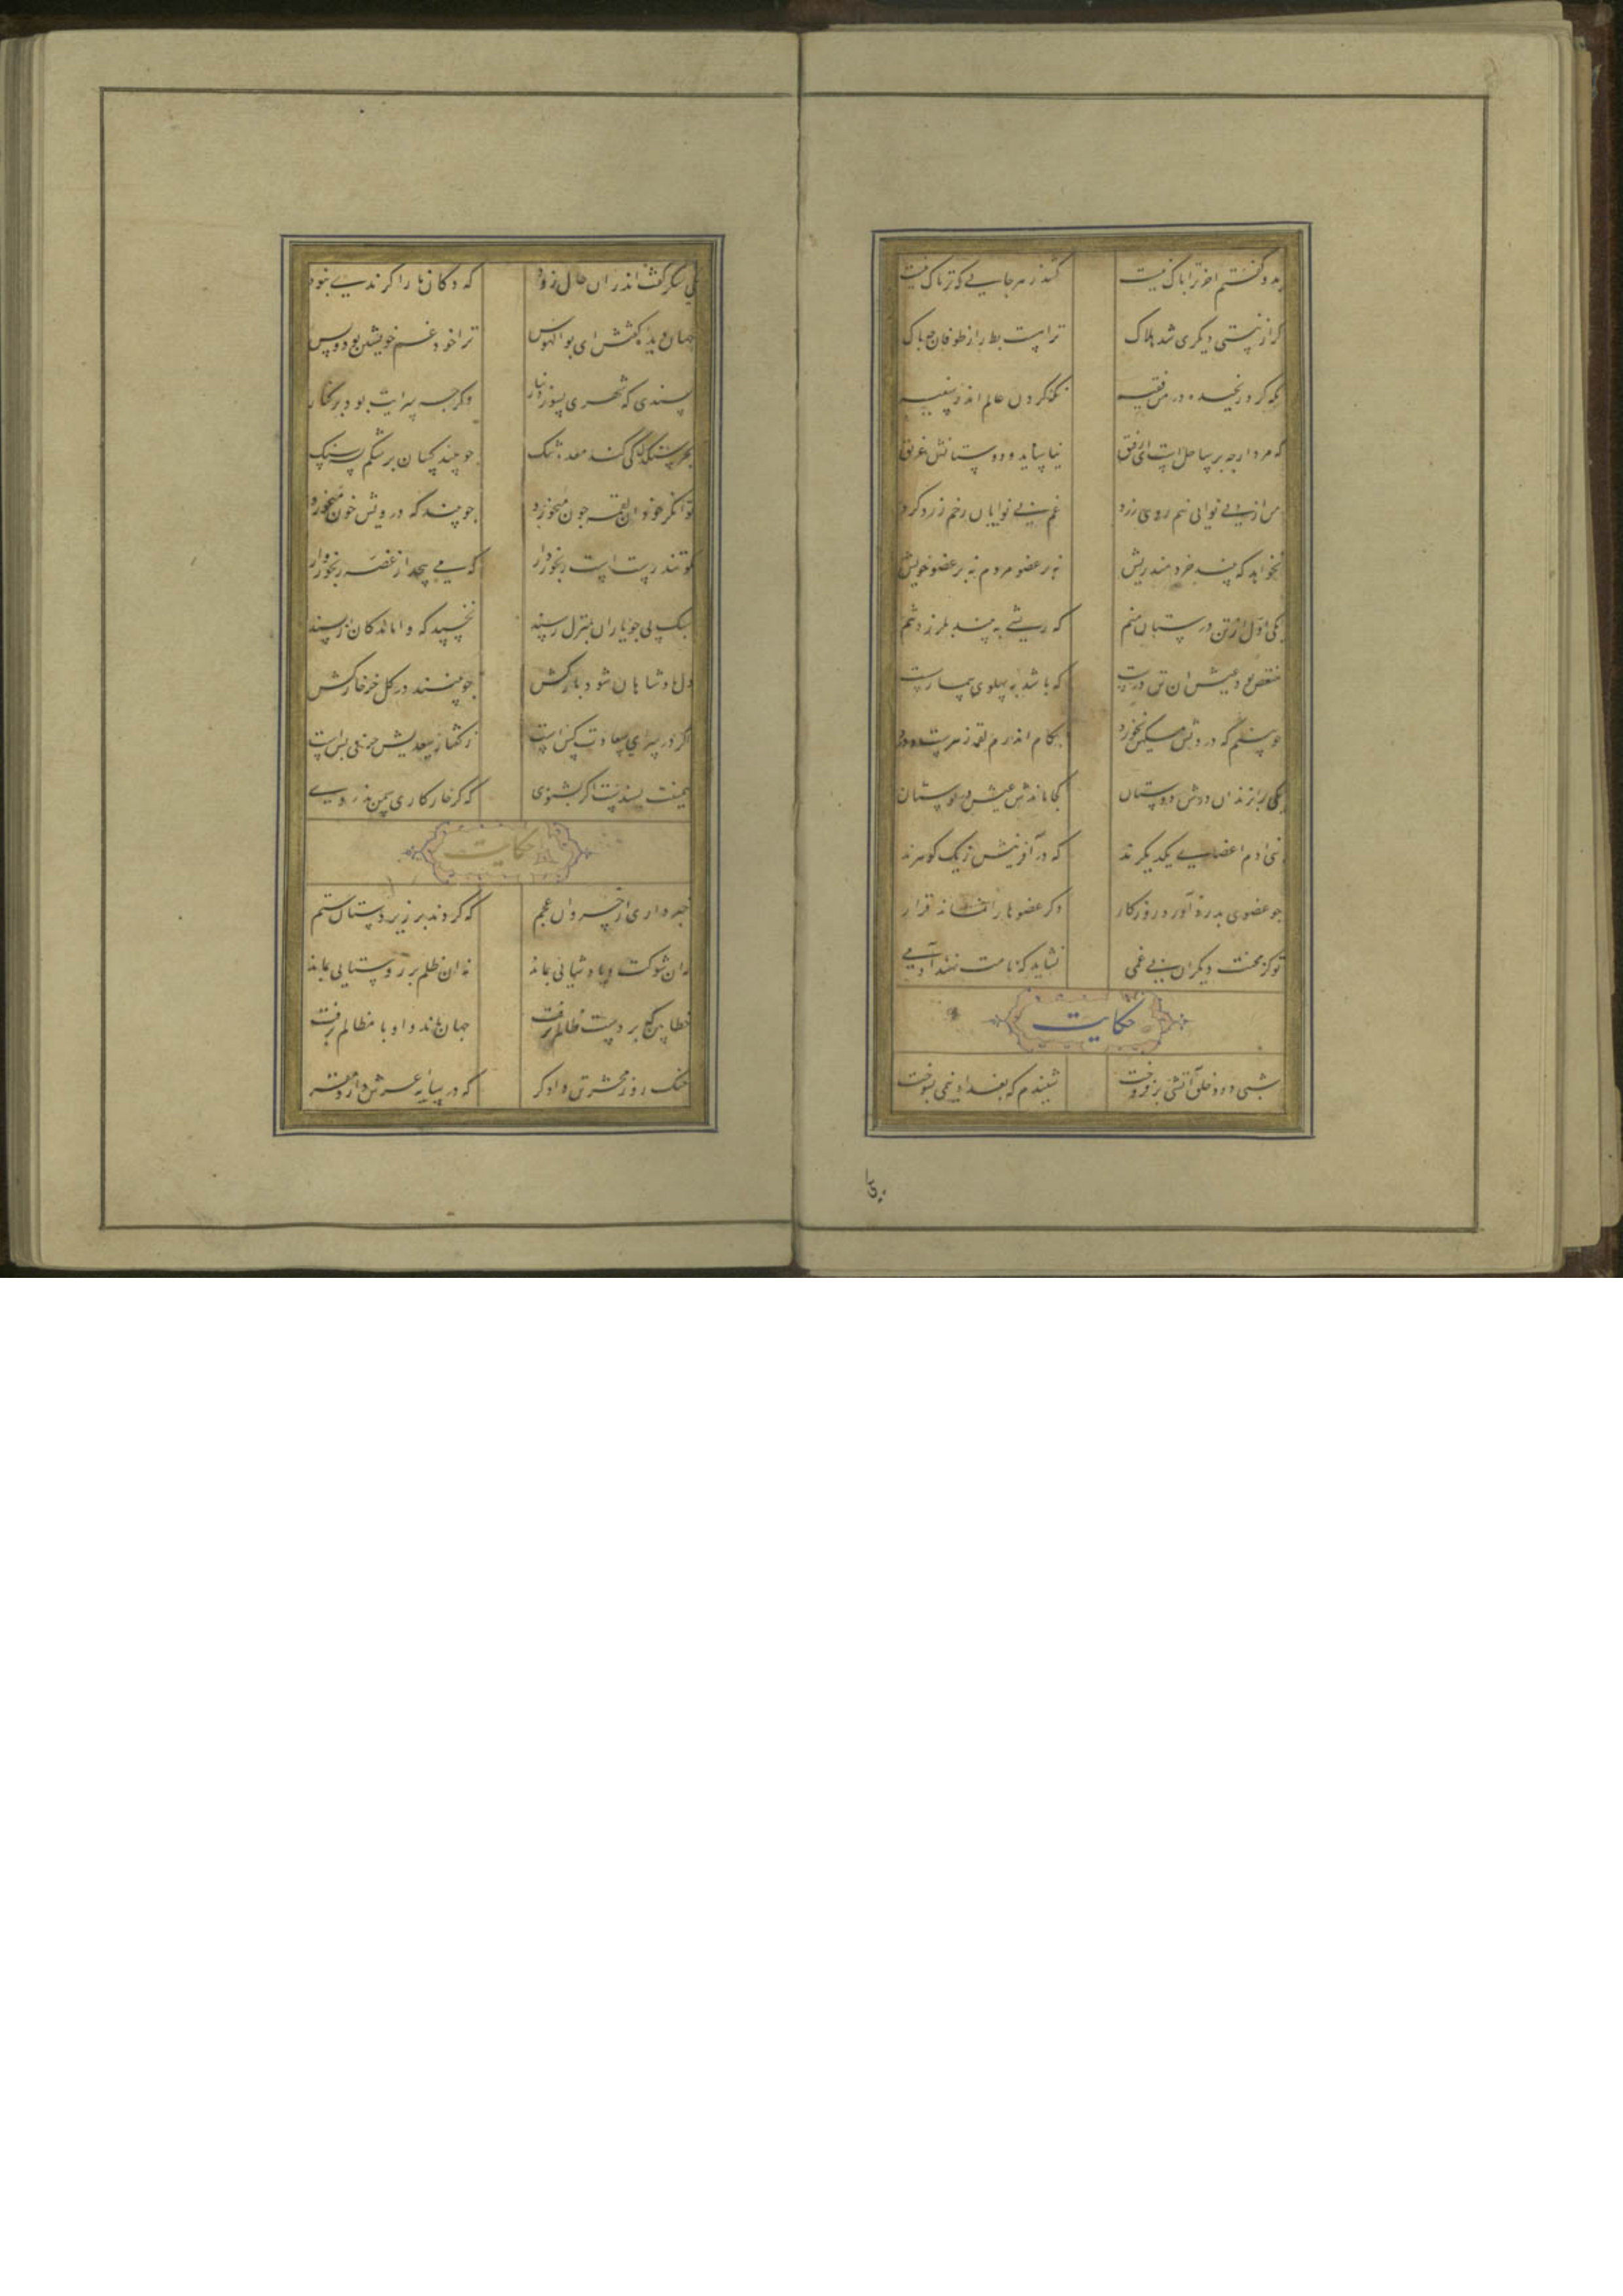 بدو گفتم اخر ترا باک نیست کشد زهر جایی که تریاک نیست
گر از نیستی دیگری شد هلاک تراهست بط را ز طوفان چه باک
نگه کرد رنجیده در من فقیه نگه کردن عالم اندر سفیه
که مرد ارچه بر ساحلست ای رفیق نیاساید و دوستانش غریق
من از بی نوایی نیم روی زرد غم بی نوایان رخم زرد کرد
نخواهد که بیند خردمند ریش نه بر عضو مردم نه بر عضو خویش
یکی اول از تن درستان منم که ریشی به بینم بلرزد تنم
منغص بود عیش ان تن درست که باشد به پهلوی بیمار سست
چو بینم که درویش مسکین نخورد بکام اندرم لقمه زهرست و درد
یکی را بزندان درش دوستان کجا ماندش عیش در بوستان
بنی ادم اعضای یکدیگرند که در آفرینش ز یک گوهرند
چو عضوی بدرد آورد روزگار دگر عضوها را نماند قرار
تو کز محنت دیگران بی غمی نشاید که نامت نهند آدمی
حکایت
شبی دود خلق آتشی برفروخت شنیدم که بغداد نیمی بسوخت
یکی شکر گفت اندران حال زود که دکان ما را گزندی نبود
جهان دیده گفتش ای بوالهوس ترا خود غم خویشتن بود و بس
پسندی که شهری بسوزد بنار وگرچه سرایت بود بر کنار
بجز سنگدل کی کند معده تنگ چو بیند کسان بر شکم بسته سنگ
توانگر خود ان لقمه چون میخورد چو بیند که درویش خون میخورد
مگو تندرستست رنجوردار که می پیچد از غصه رنجوروار
سبک پی چو یاران بمنزل رسند نخسبد که واماندگان از پسند
دل پادشاهان شود بارکش چو بینند در گل خر خارکش
اگر در سرای سعادت کس است ز گفتار سعدیش حرفی بس است
همینت بسندست اگر بشنوی که گر خار کاری سمن ندروی
حکایت
خبر داری از خسروان عجم که کردند بر زیردستان ستم
نه ان شوکت و پادشایی بماند نه ان ظلم بر روستایی بماند
خطا بین که بر دست ظالم برفت جهان ماند و او با مظالم برفت
خنک روز محشر تن دادگر که در سایه عرش دارد مقر